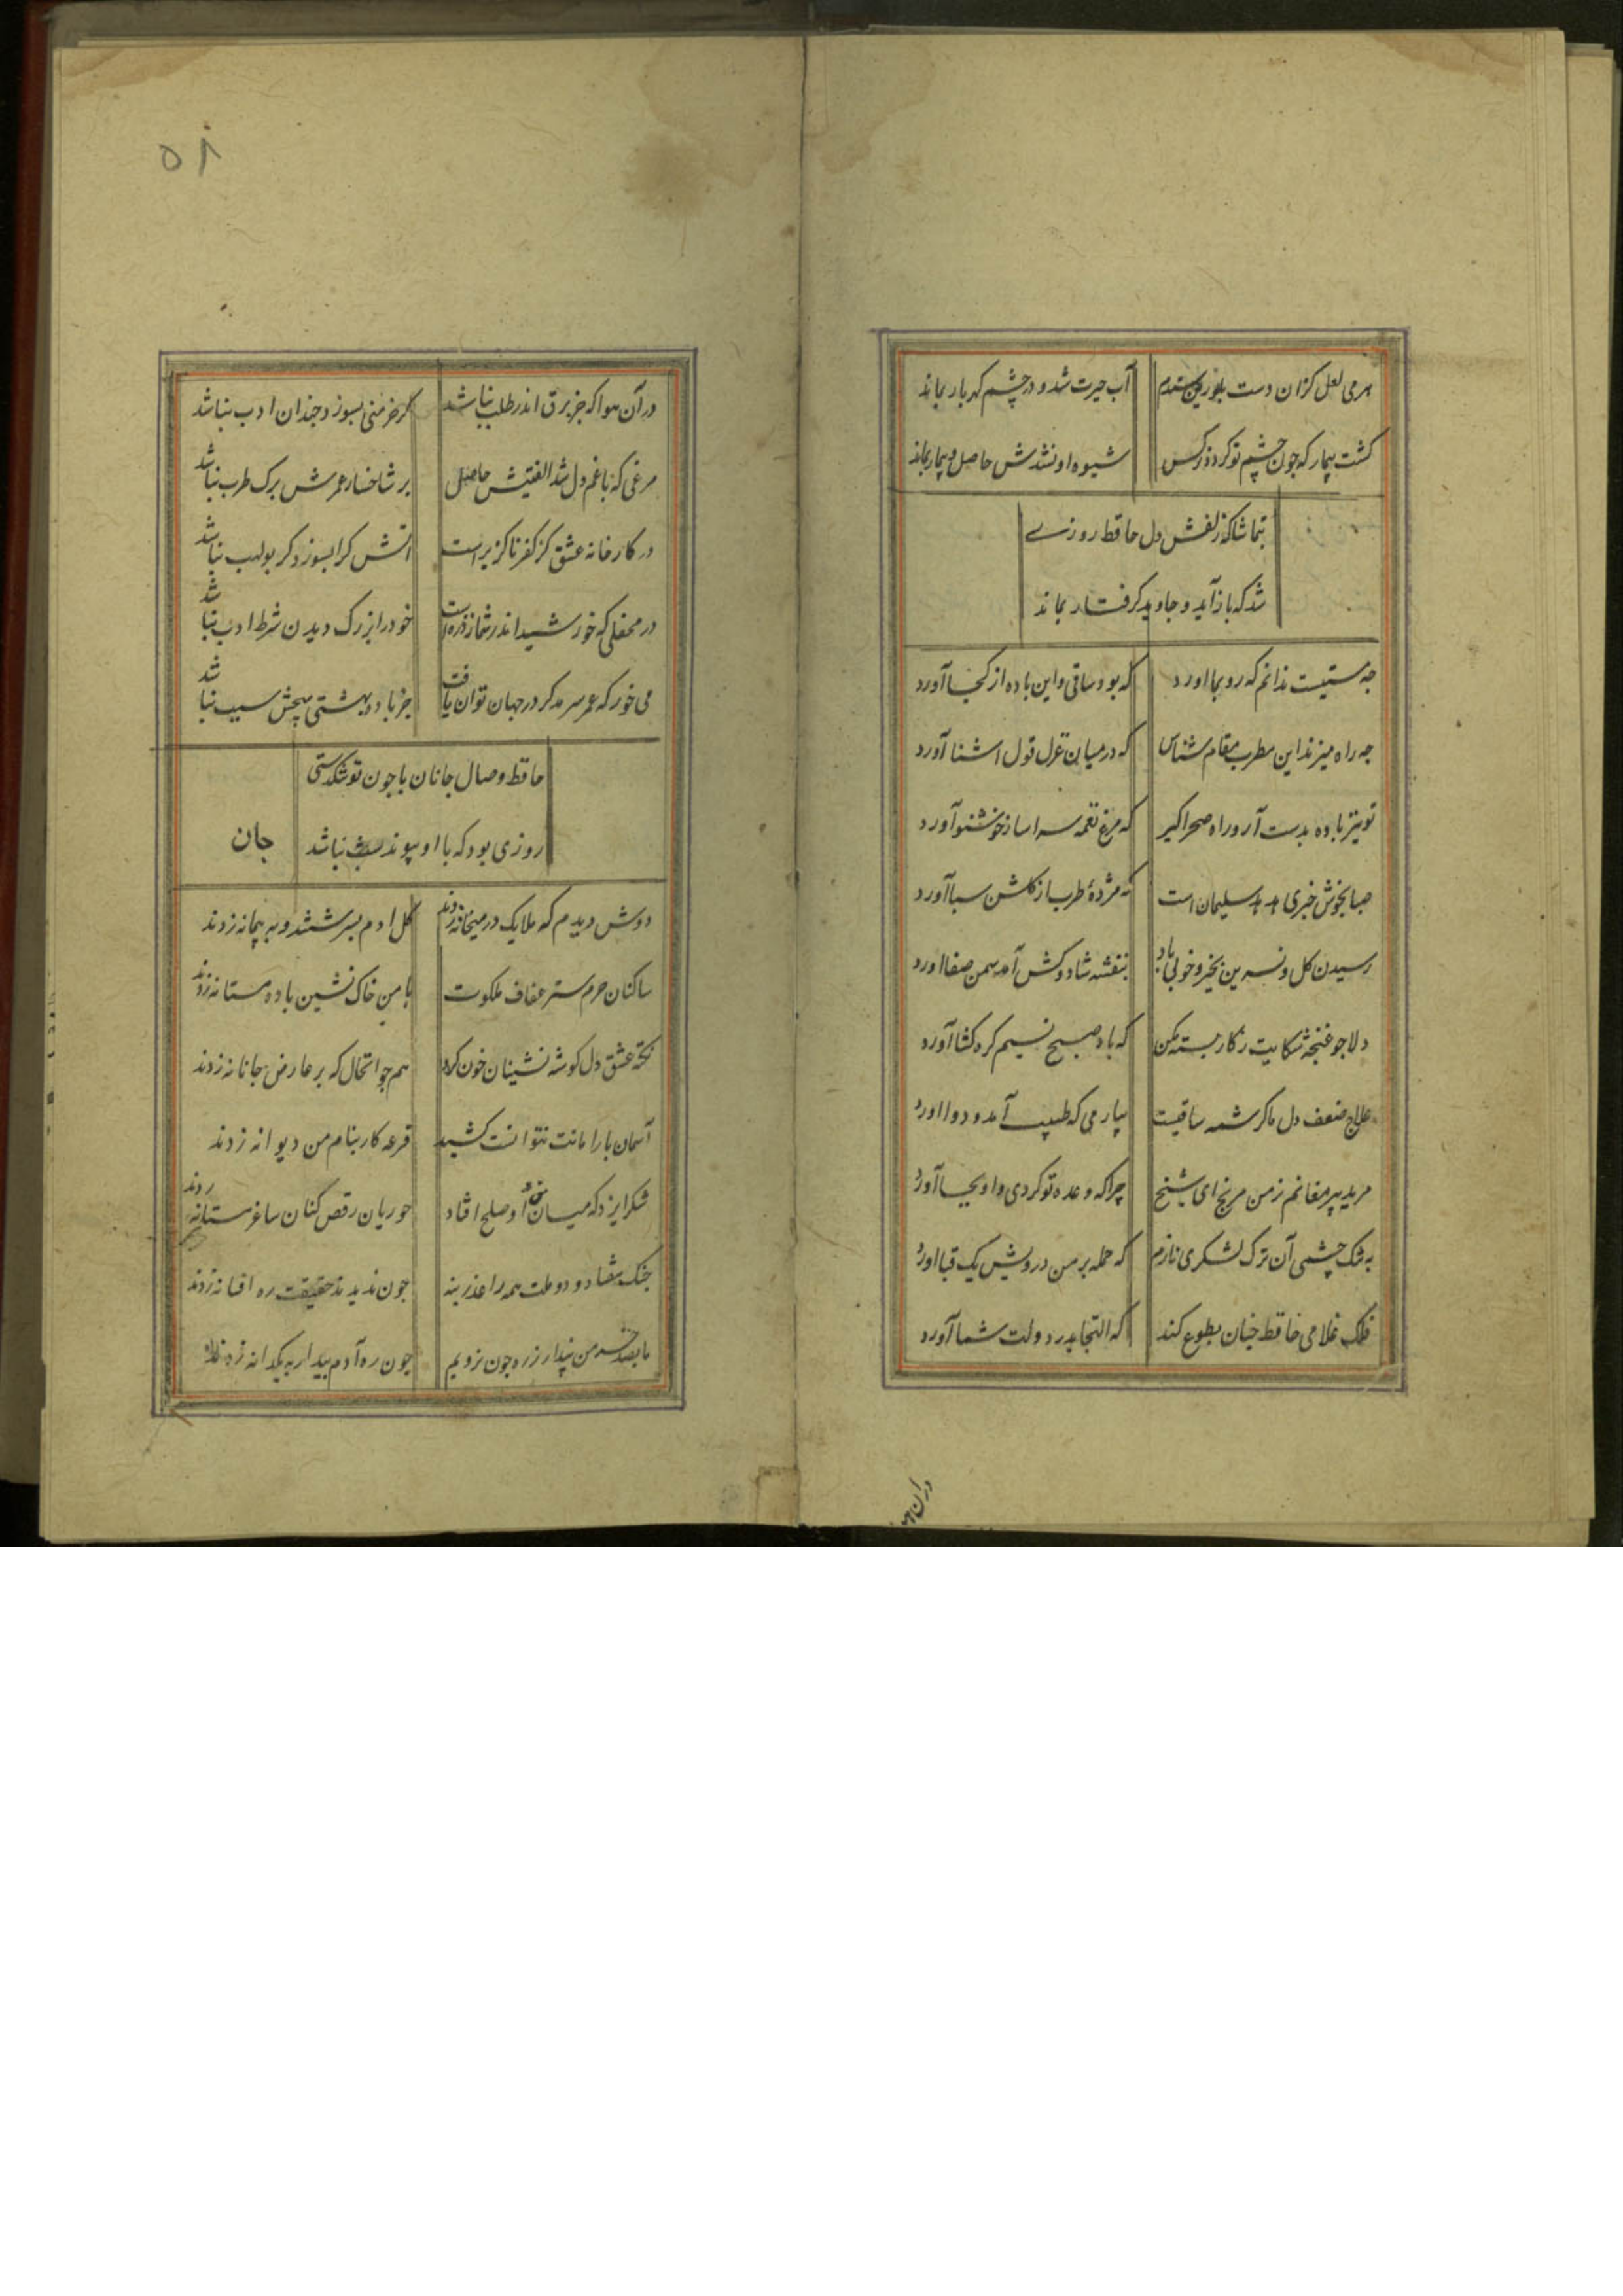 هر می لعل کزان دست بلورین ستدم آب حیرت شد و در چشم گهربار بماند
کشت بیمار که چون چشم تو کردد نرکس شیوه او نشدش حاصل و بیمار بماند
بتماشاکه زلفش دل حافظ روزے
شد که باز آید و جاوید کرفتار بماند
چه مستیست ندانم که رو بما اورد که بود ساقی و این باده از کجا آورد
چه راه میزند این مطرب مقام شناس که در میان غزل قول اشنا آورد
تو نیز باده بدست آر و راه صحرا کیر که مرغ نغمه سرا ساز خوشنو آورد
صبا بخوش خبری هدهد سلیمان است که مژدهٔ طرب از کلشن سبا آورد
رسیدن کل و نسرین بخیر و خوبی باد بنفشه شاد و کش آمد سمن صفا اورد
دلا جو غنچه شکایت ز کار بسته مکن که باد صبح نسیم کره کشا آورد
علاج ضعف دل ما کرشمه ساقیست بیار می که طبیب آمد و دوا اورد
مرید پیر مغانم ز من مرنج ای شیخ چرا که وعده تو کردی و او بجا آورد
به تنک چشمی آن ترک لشکری نازم که حمله بر من درویش یک قبا اورد
فلک غلامی حافظ چنان بطوع کند که التجا بدر دولت شما آورد
در آن هوا
۵۸
در آن هوا که جز برق اندر طلب نباشد کر خرمنی بسوزد چندان ادب نباشد
مرغی که با غم دل شد الفتیش حاصل بر شاخسار عمرش برک طرب نباشد
در کارخانه عشق کز کفر ناکزیر است اتش کرا بسوزد کر بولهب نباشد
در محفلی که خورشید اندر شمار ذره است خود را بزرک دیدن شرط ادب نباشد
می خور که عمر سرمد کر در جهان توان یافت جز باده بهشتی هیچش سبب نباشد
حافظ وصال جانان با چون تو تنکدستی
روزی بود که با او پیوند شب نباشد جان
دوش دیدم که ملایک در میخانه زدند کل ادم بسرشتند و به پیمانه زدند
ساکنان حرم ستر عفاف ملکوت با من خاک نشین باده مستانه زدند
نکته عشق دل کوشه نشینان خون کرد هم جو انخال که بر عارض جانانه زدند
آسمان بار امانت نتوانست کشید قرعه کار بنام من دیوانه زدند
شکر ایزد که میان من و او صلح افتاد حوریان رقص کنان ساغر مستانه زدند
جنک هفتاد و دو ملت همه را عذر بنه جون ندیدند حقیقت ره افسانه زدند
ما بصد خرمن پندار ز ره جون نرویم جون ره آدم بیدار به یکدانه زدند